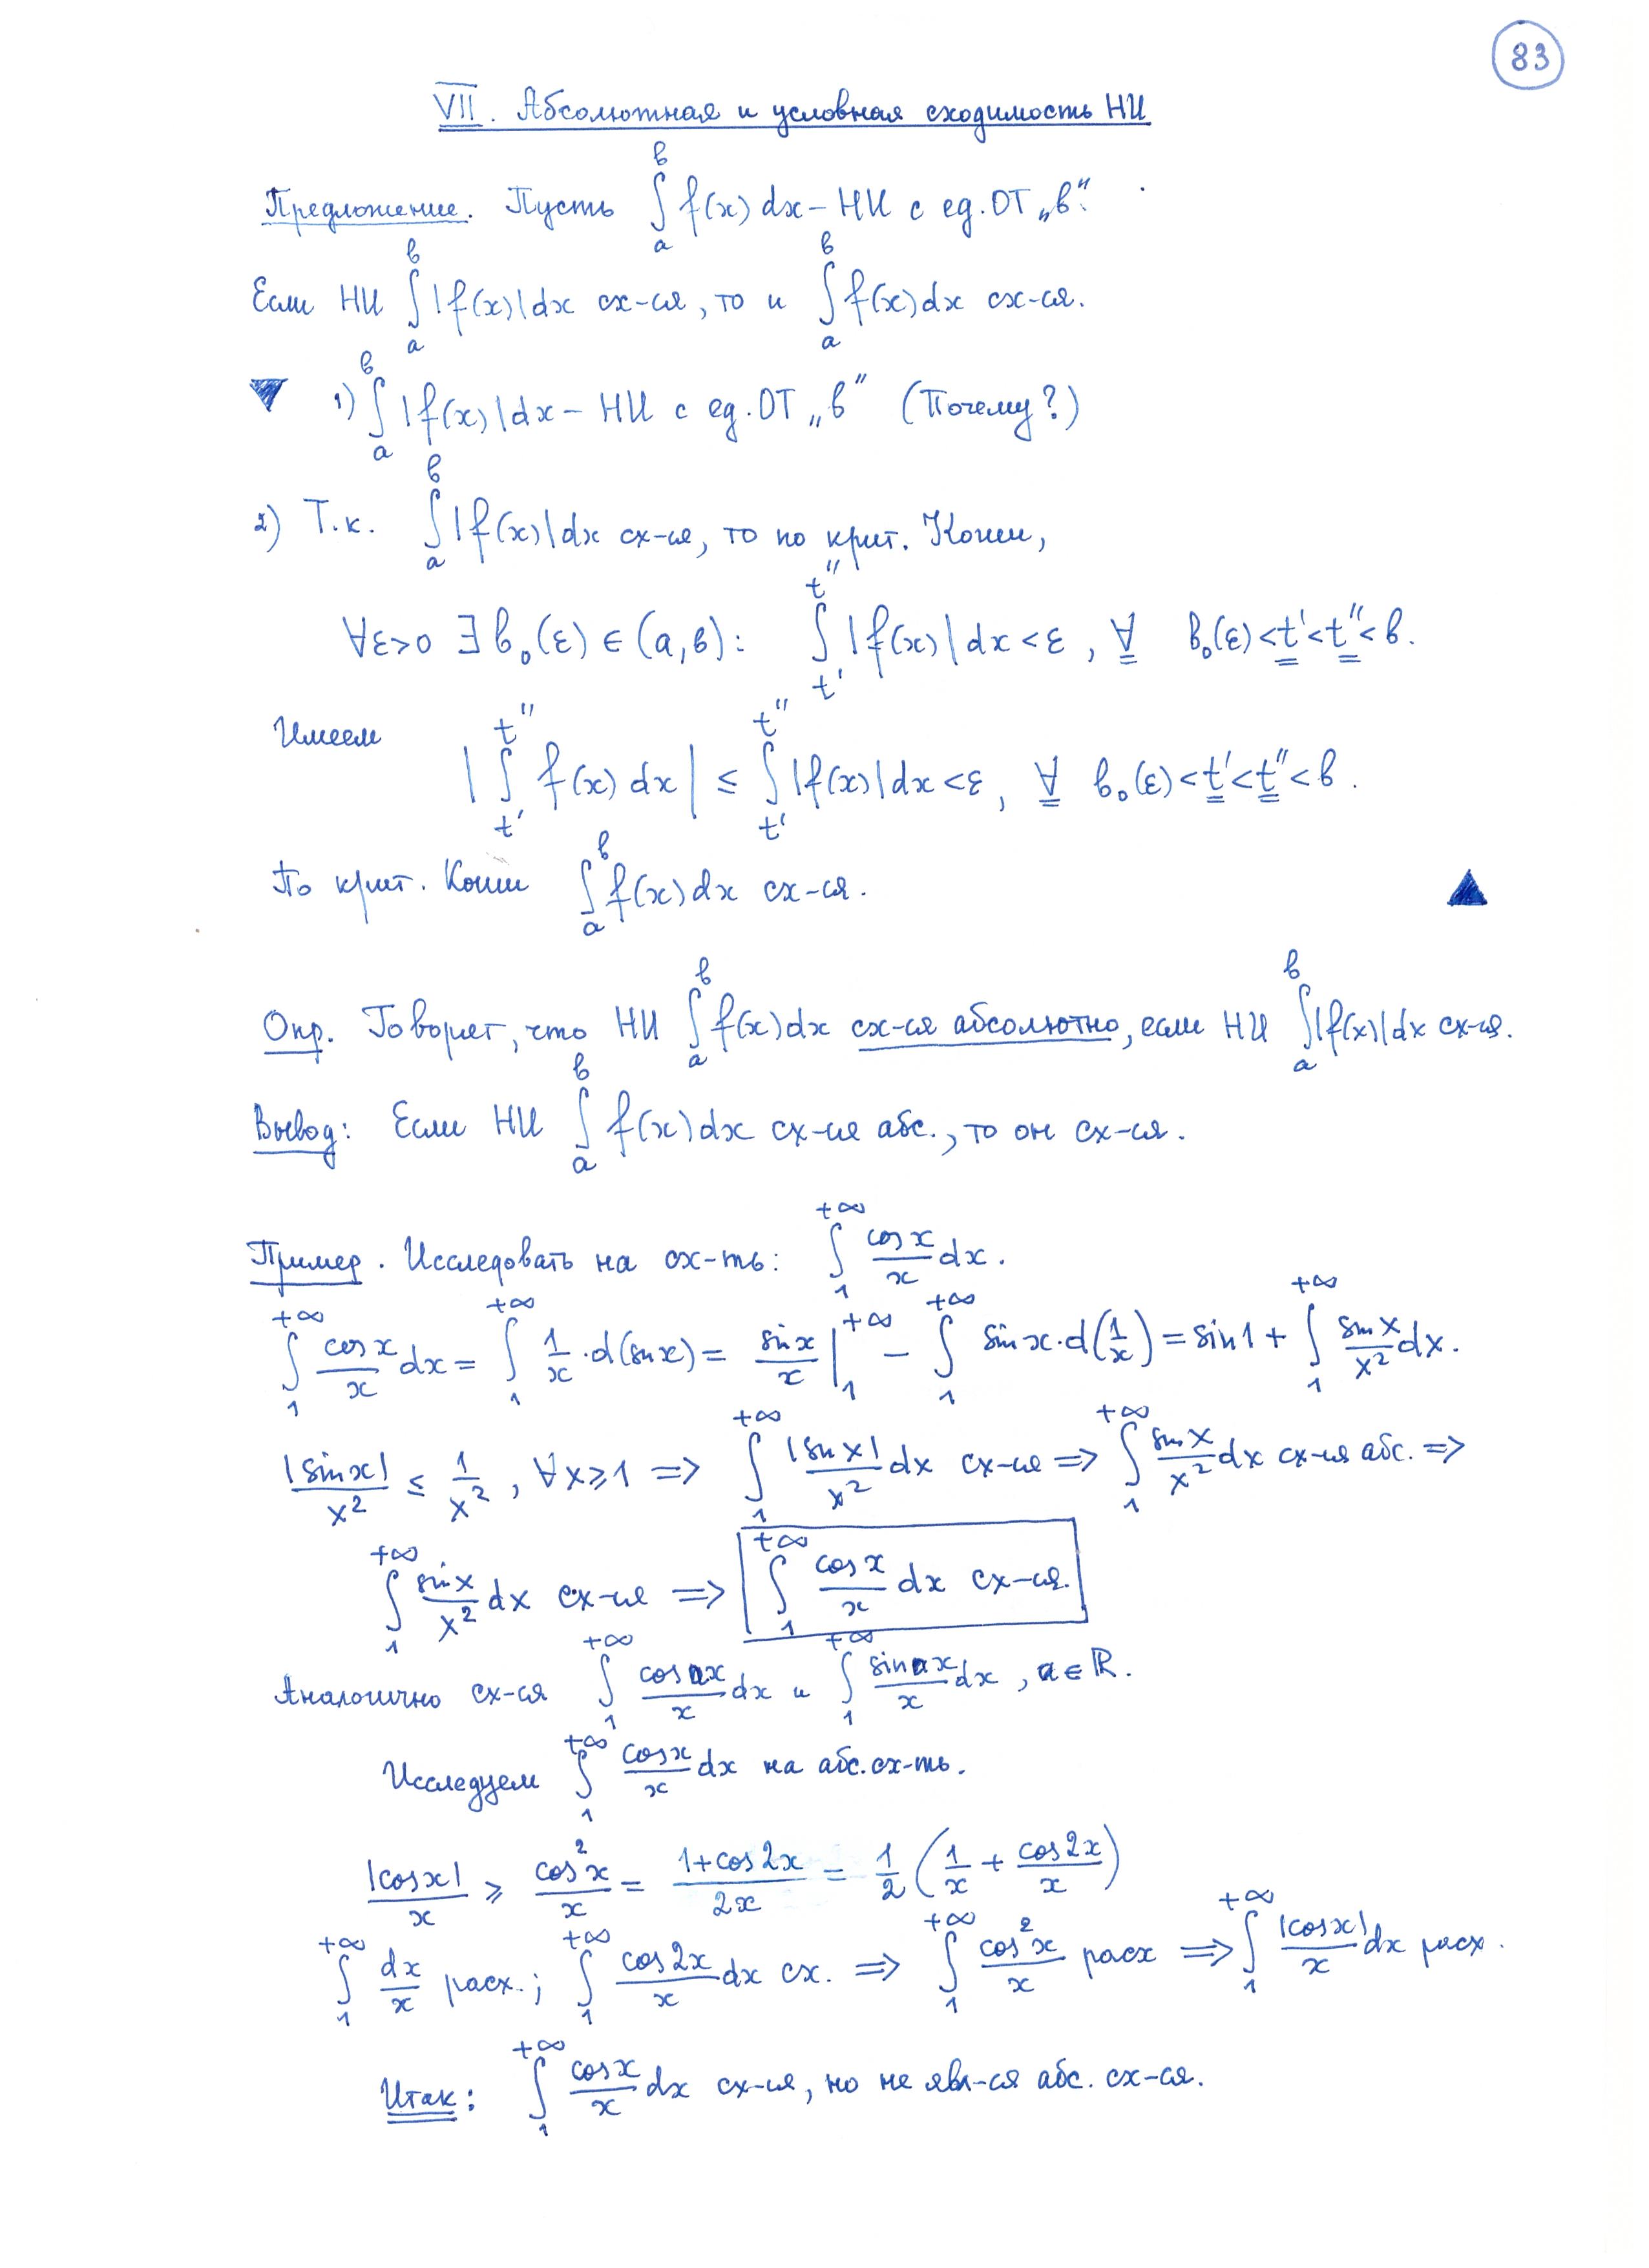 83
VII. Абсолютная и условная сходимость НИ
Предложение. Пусть ∫_a^b f(x) dx – НИ с ед. ОТ „b“.
Если НИ ∫_a^b |f(x)|dx сх-ся, то и ∫_a^b f(x)dx сх-ся.
▼ 1) ∫_a^b |f(x)|dx – НИ с ед. ОТ „b“ (Почему?)
2) Т.к. ∫_a^b |f(x)|dx сх-ся, то по крит. Коши,
∀ε>0 ∃ b₀(ε) ∈ (a,b): ∫_{t'}^{t''} |f(x)|dx < ε, ∀ b₀(ε)<t'<t''<b.
Имеем |∫_{t'}^{t''} f(x) dx| ≤ ∫_{t'}^{t''} |f(x)|dx < ε, ∀ b₀(ε)<t'<t''<b.
По крит. Коши ∫_a^b f(x)dx сх-ся. ▲
Опр. Говорят, что НИ ∫_a^b f(x)dx сх-ся абсолютно, если НИ ∫_a^b |f(x)|dx сх-ся.
Вывод: Если НИ ∫_a^b f(x)dx сх-ся абс., то он сх-ся.
Пример. Исследовать на сх-ть: ∫_1^{+∞} cosx/x dx.
∫_1^{+∞} cosx/x dx = ∫_1^{+∞} 1/x · d(sinx) = sinx/x |_1^{+∞} – ∫_1^{+∞} sinx·d(1/x) = sin1 + ∫_1^{+∞} sinx/x² dx.
|sinx|/x² ≤ 1/x², ∀x⩾1 => ∫_1^{+∞} |sinx|/x² dx сх-ся => ∫_1^{+∞} sinx/x² dx сх-ся абс. =>
∫_1^{+∞} sinx/x² dx сх-ся => ∫_1^{+∞} cosx/x dx сх-ся.
Аналогично сх-ся ∫_1^{+∞} cosax/x dx и ∫_1^{+∞} sinax/x dx, a∈ℝ.
Исследуем ∫_1^{+∞} cosx/x dx на абс. сх-ть.
|cosx|/x ⩾ cos²x/x = (1+cos2x)/2x = 1/2 (1/x + cos2x/x)
∫_1^{+∞} dx/x расх.; ∫_1^{+∞} cos2x/x dx сх. => ∫_1^{+∞} cos²x/x расх => ∫_1^{+∞} |cosx|/x dx расх.
Итак: ∫_1^{+∞} cosx/x dx сх-ся, но не явл-ся абс. сх-ся.